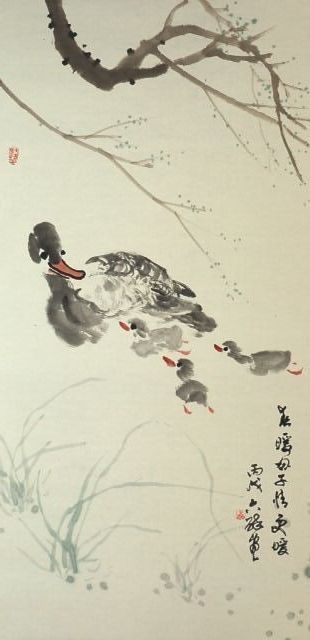 春暖母子情更暖
丙戌六 画